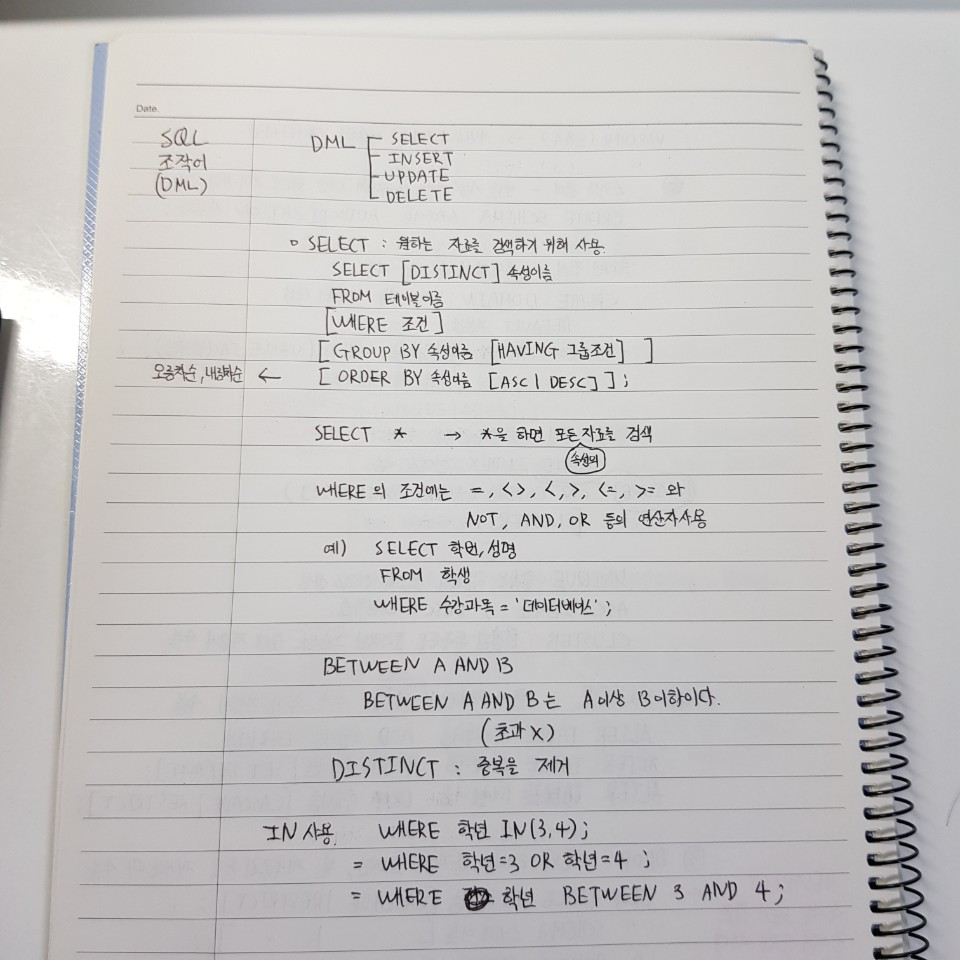 Date.
SQL
조작어
(DML)
DML
SELECT
INSERT
UPDATE
DELETE
SELECT : 원하는 자료를 검색하기 위해 사용.
SELECT [DISTINCT] 속성이름
FROM 테이블이름
[WHERE 조건]
[GROUP BY 속성이름 [HAVING 그룹조건] ]
오름차순, 내림차순 ← [ORDER BY 속성이름 [ASC | DESC] ];
SELECT * → *을 하면 모든 자료를 검색
속성의
WHERE의 조건에는 =, <>, <, >, <=, >= 와
NOT, AND, OR 등의 연산자사용
예) SELECT 학번, 성명
FROM 학생
WHERE 수강과목 = '데이터베이스';
BETWEEN A AND B
BETWEEN A AND B는 A이상 B이하이다.
(초과 X)
DISTINCT : 중복을 제거
IN 사용. WHERE 학년 IN(3,4);
= WHERE 학년=3 OR 학년=4 ;
= WHERE 학년 BETWEEN 3 AND 4;